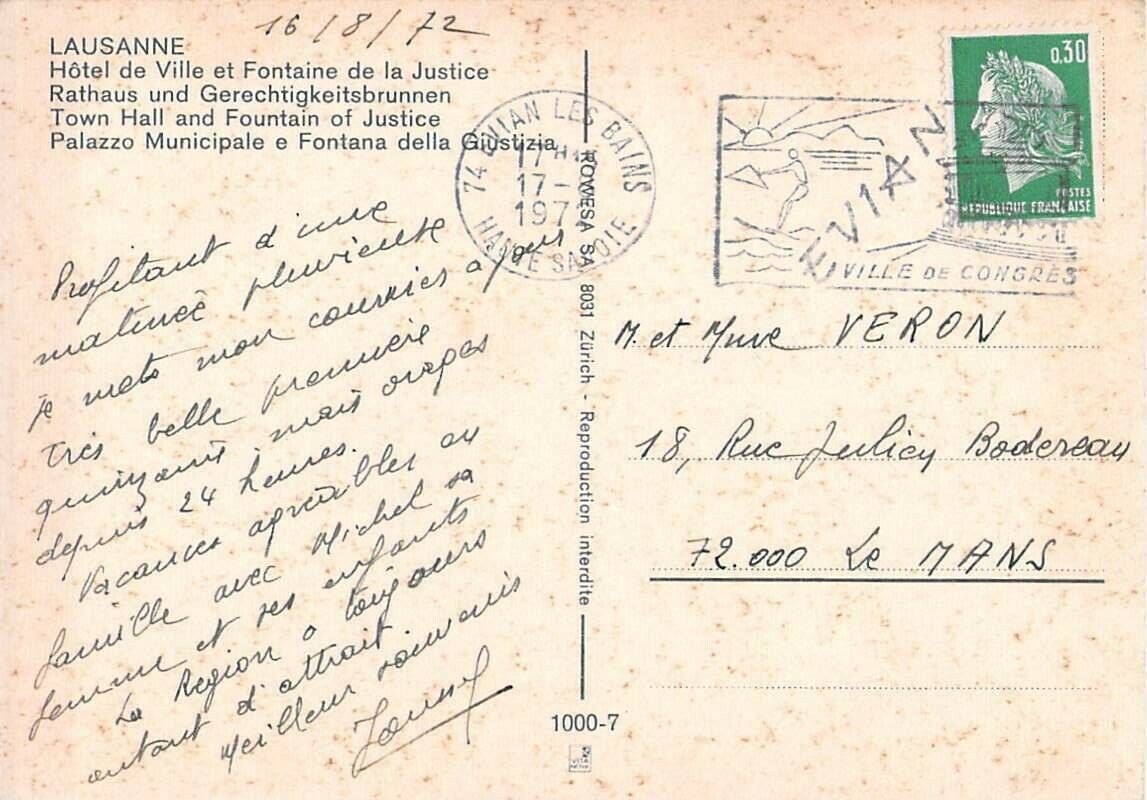 16/8/72
LAUSANNE
Hôtel de Ville et Fontaine de la Justice
Rathaus und Gerechtigkeitsbrunnen
Town Hall and Fountain of Justice
Palazzo Municipale e Fontana della Giustizia
Profitant d'une
matinée pluvieuse
je mets mon courrier à jour
très belle première
quinzaine mais orages
depuis 24 heures.
Vacances agréables en
famille avec Michel sa
femme et ses enfants
La Region a toujours
autant d'attrait
Meilleurs souvenirs
74 EVIAN LES BAINS
17 H
17 - 8
197
HAUTE SAVOIE
EVIAN
VILLE DE CONGRÈS
0,30
POSTES
REPUBLIQUE FRANÇAISE
ROWESA SA 8031 Zürich - Reproduction interdite
M. et Mme VERON
18, Rue Julien Bodereau
72.000 Le MANS
1000-7